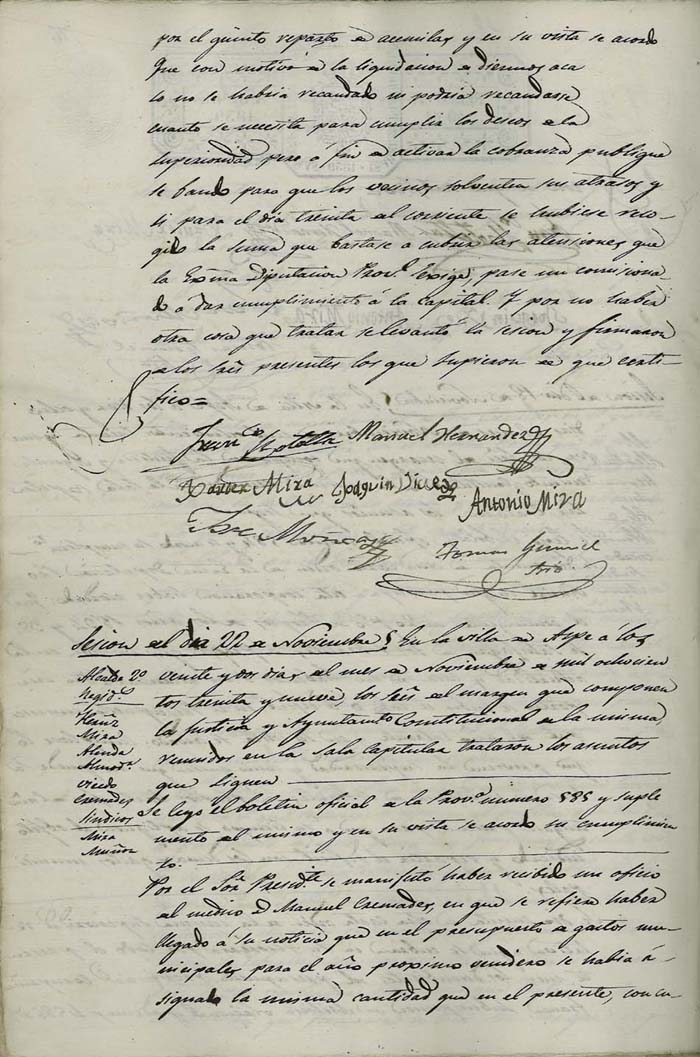 por el quinto reparto de acemilas y en su vista se acordo
Que con motivo de la liquidacion de diezmos, aca
so no se habria recaudado ni podria recaudarse
cuanto se necesita para cumplir los deseos de la
Superioridad pero á fin de activar la cobranza publique
se bando para que los vecinos solventen sus atrasos y
si para el dia treinta del corriente se hubiese reco-
gido la suma que bastase a cubrir las atensiones que
la Exma Diputacion Provl. exige, pase un comisiona
do á dar cumplimiento á la capital. Y por no haber
otra cosa que tratar se levantó la sesion y firmaron
de los Sres presentes los que supieron de que certi-
fico=
Franco Manuel Hernandez
Xavier Mira Joaquin Antonio Mira
Jose Muñoz
Tomas
Srio.
Sesion del dia 22 de Noviembre En la villa de Aspe á los
Alcalde 2o veinte y dos dias del mes de Noviembre de mil ochocien
Regids. tos treinta y nueve, los Sres del margen que componen
Mira la Justicia y Ayuntamto Constitucional de la misma,
Almoda. reunidos en la Sala Capitular trataron los asuntos
viedo que siguen
Cremades Se leyo el boletin oficial de la Prova. numero 585 y suple
Sindicos mento al mismo y en su vista se acordo su cumplimien
Mira to.
Muñoz
Por el Sor. Presidte se manifestó haber recibido un oficio
del medico D. Manuel Cremades, en que se refiere haber
llegado á su noticia que en el presupuesto de gastos mu-
nicipales para el año proximo venidero se habia á-
signado la misma cantidad que en el presente, con cu-